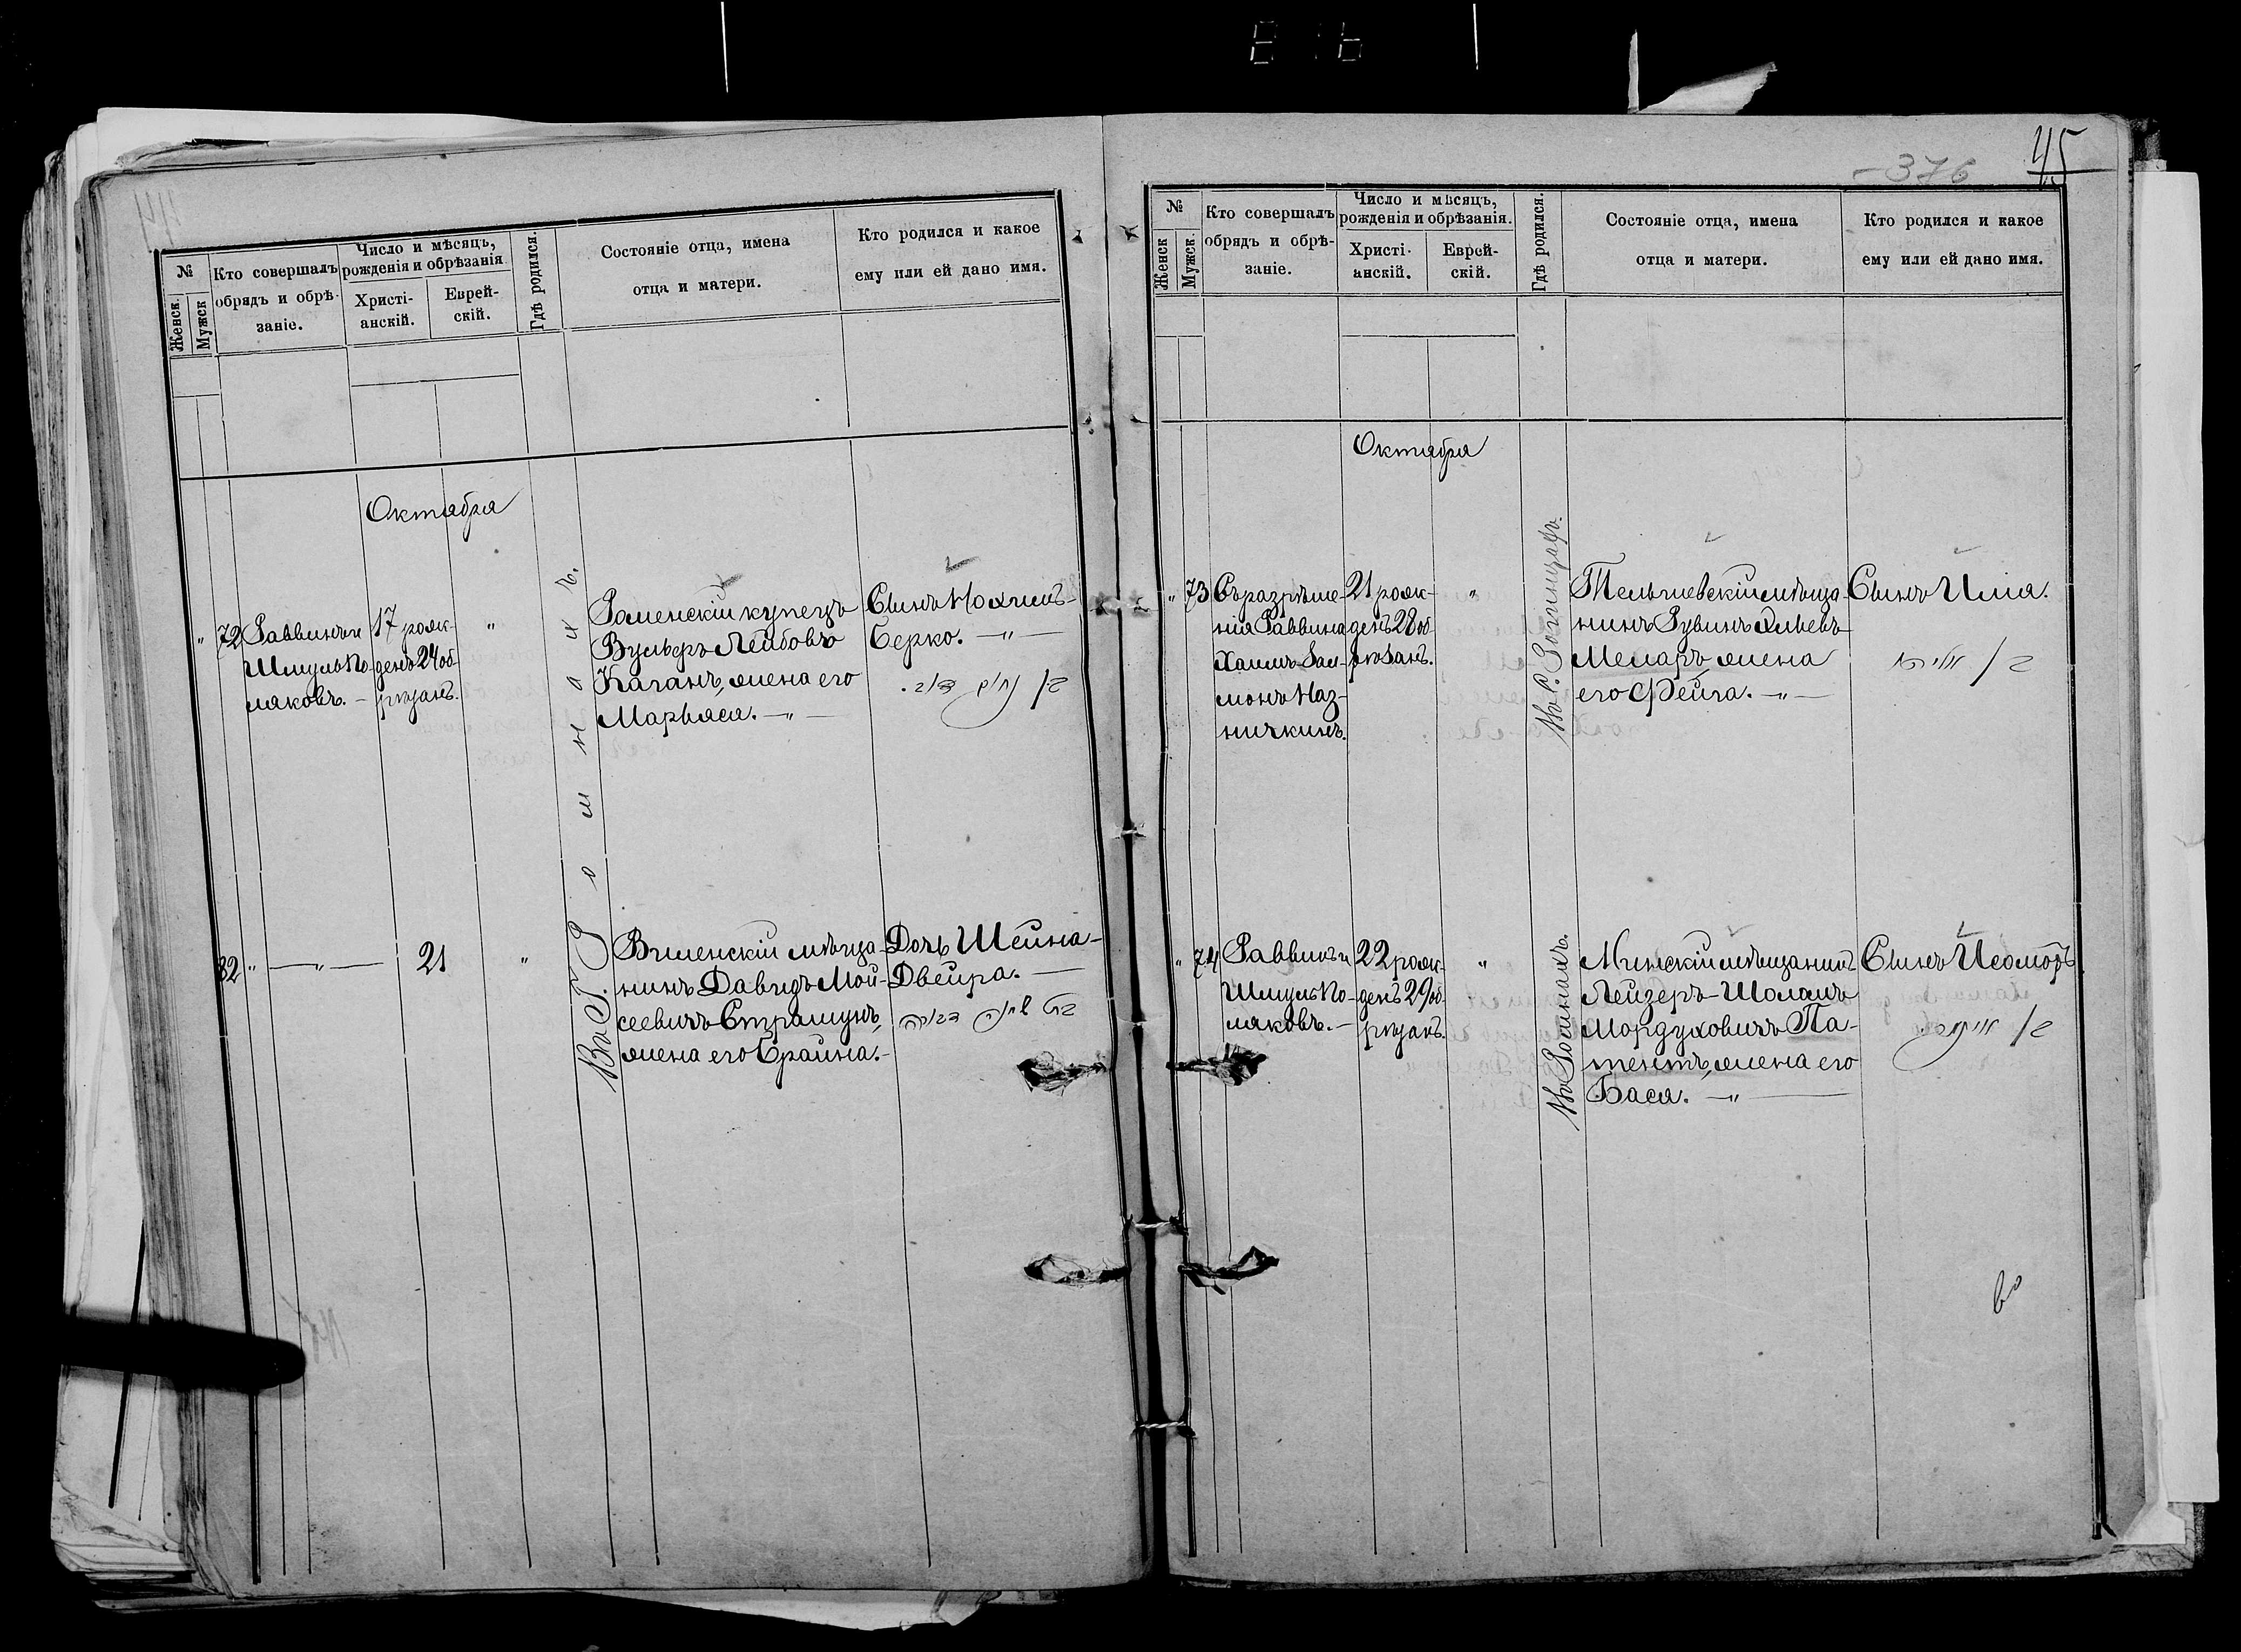 45
376
№
Женск.
Мужск
Кто совершалъ
обрядъ и обрѣ-
заніе.
Число и мѣсяцъ,
рожденія и обрѣзанія
Христі-
анскій.
Еврей-
скій.
Гдѣ родился.
Состояніе отца, имена
отца и матери.
Кто родился и какое
ему или ей дано имя.
Октября
" 72
Раввинъ и
Шмуль По-
ляковъ. —
17 рож-
денъ 24 об-
рѣзанъ.
"
Въ Г. Ромнахъ.
Роменскій купецъ
Вульфъ Лейбовъ
Каганъ, жена его
Марьяся. —"—
Сынъ Нохимъ-
Берко. —"—
32 "
—"—
21
"
Виленскій мѣща-
нинъ Давидъ Мой-
сеевичъ Страшунъ,
жена его Брайна. —
Дочь Шейна-
Двейра. —
№
Женск
Мужск.
Кто совершалъ
обрядъ и обрѣ-
заніе.
Число и мѣсяцъ,
рожденія и обрѣзанія.
Христі-
анскій.
Еврей-
скій.
Гдѣ родился.
Состояніе отца, имена
отца и матери.
Кто родился и какое
ему или ей дано имя.
Октября
" 73
Съ разрѣше-
нія Раввина
Хаимъ Зал-
монъ Наз-
ничкинъ.
21 рож-
денъ 28 об-
рѣзанъ.
"
Тельшевскій мѣща-
нинъ Рувинъ
Меларъ, жена
его Фейга. —"—
Сынъ Илія.
" 74
Раввинъ и
Шмуль По-
ляковъ. —
22 рож-
денъ 29 об-
рѣзанъ.
"
Въ Ромнахъ.
Минскій мѣщанинъ
Лейзеръ-Шоломъ
Мордуховичъ Па-
тентъ, жена его
Бася. —"—
Сынъ Исоморъ